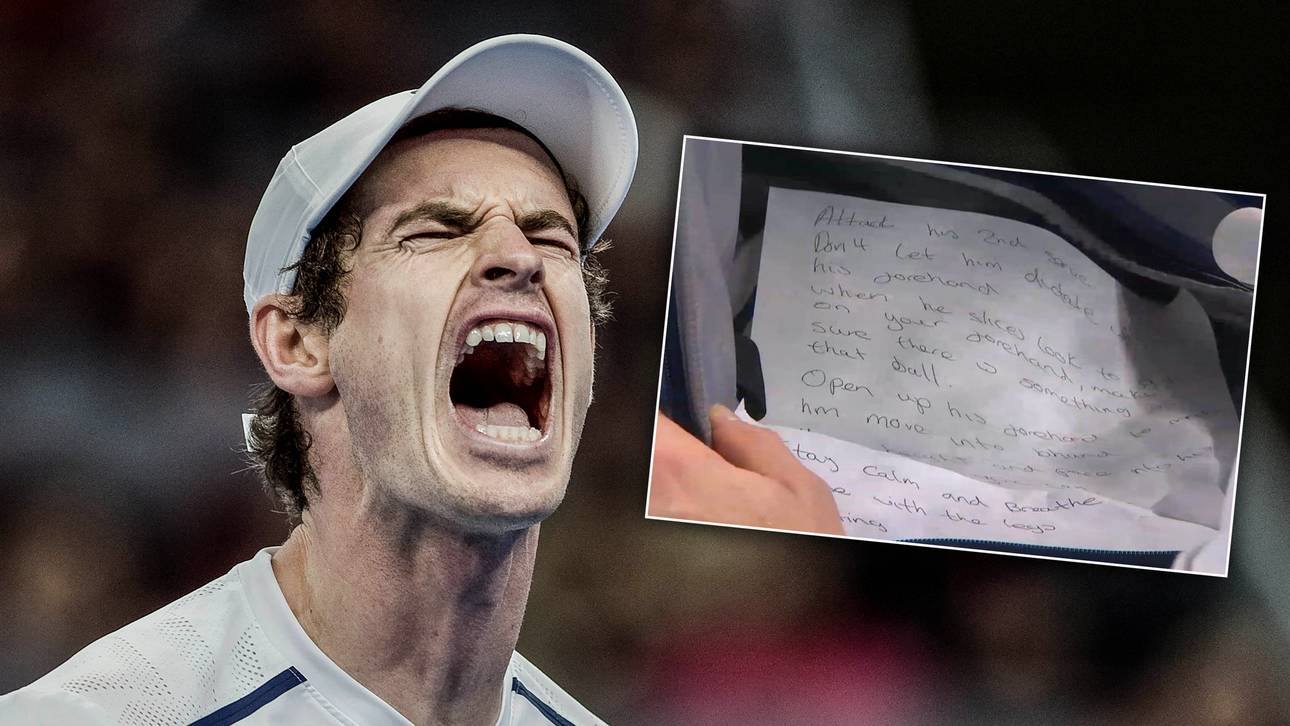 Attack his 2nd Serve
Don't let him dictate
his forehand
when he slices look to
on your forehand, make
sure there is something
that ball.
Open up his forehand to
him move into bhund
and
tay calm and Breathe
with the legs